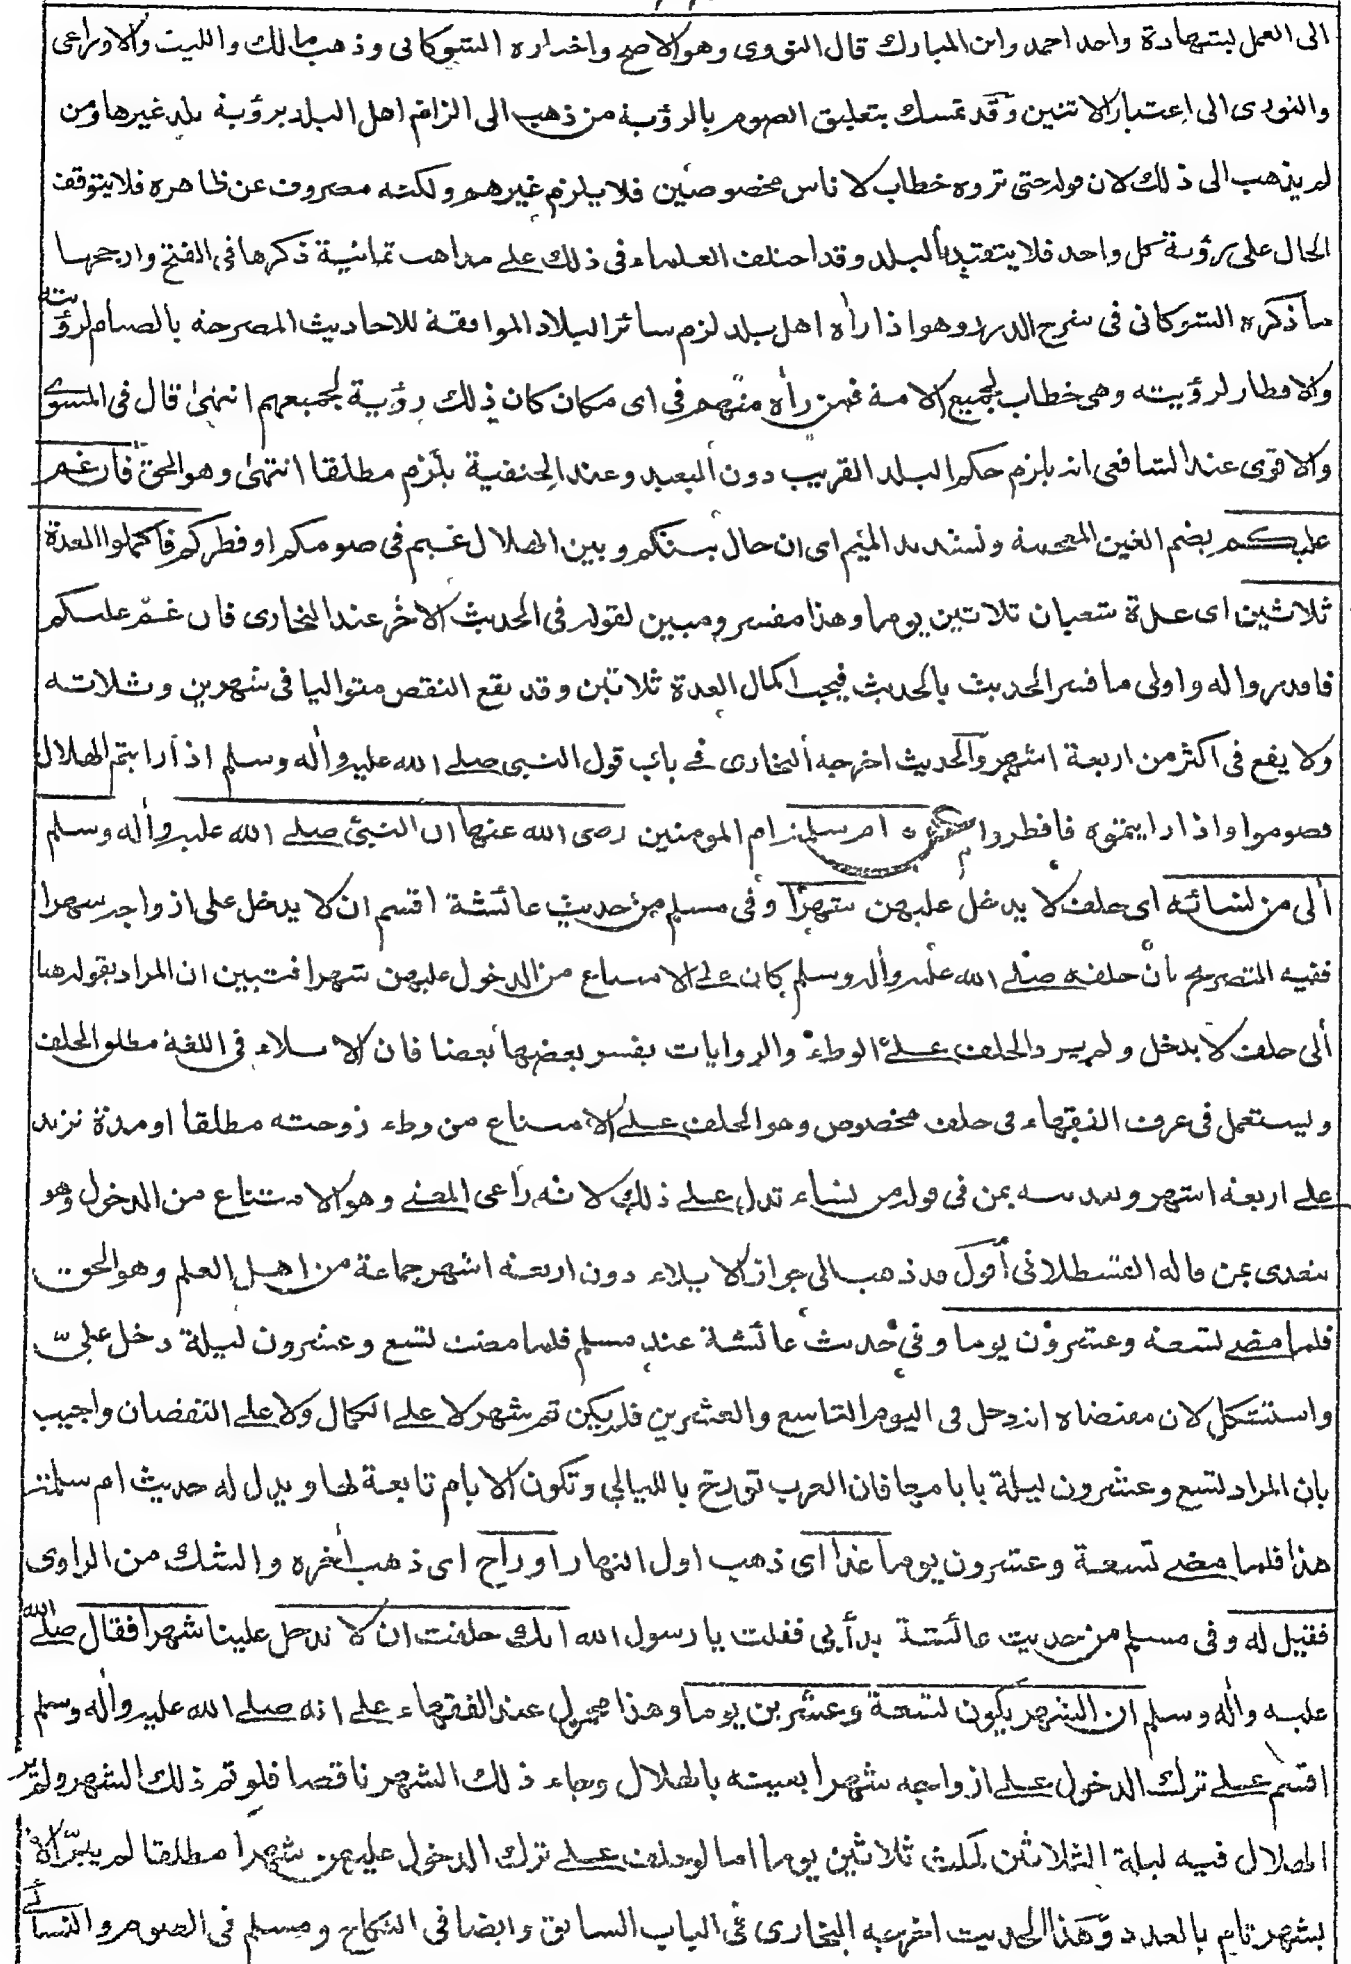 الى العمل بشهادة واحد احمد وابن المبارك قال النووى وهو الاصح واختاره الشوكانى وذهب مالك والليث والاوزاعى
والثورى الى اعتبار الاثنين وقد تمسك بتعليق الصوم بالرؤية من ذهب الى الزام اهل البلد برؤية بلد غيرها ومن
لم يذهب الى ذلك لان قوله حتى تروه خطاب لاناس مخصوصين فلا يلزم غيرهم ولكنه مصروف عن ظاهره فلا يتوقف
الحال على رؤية كل واحد فلا يتقيد بالبلد وقد اختلف العلماء فى ذلك على مذاهب ثمانية ذكرها فى الفتح وارجحها
ما ذكره الشوكانى فى شرح الدرر وهو اذا راٰه اهل بلد لزم سائر البلاد الموافقة للاحاديث المصرحة بالصيام لرؤيته
والافطار لرؤيته وهى خطاب لجميع الامة فمن راٰه منهم فى اى مكان كان ذلك رؤية لجميعهم انتهىٰ قال فى المسوے
والاقوى عند الشافعى انه يلزم حكم البلد القريب دون البعيد وعند الحنفية يلزم مطلقا انتهىٰ وهو الحق فان غم
عليكم بضم الغين المعجمة وتشديد الميم اى ان حال بينكم وبين الهلال غيم فى صومكم او فطركم فاكملوا العدة
ثلاثين اى عدة شعبان ثلاثين يوما وهذا مفسر ومبين لقوله فى الحديث الاٰخر عند البخارى فان غمّ عليكم
فاقدروا له واولى ما فسر الحديث بالحديث فيجب اكمال العدة ثلاثين وقد يقع النقص متواليا فى شهرين وثلاثة
ولا يقع فى اكثر من اربعة اشهر والحديث اخرجه البخارى فے باب قول النبى صلے الله عليه واٰله وسلم اذا رايتم الهلال
فصوموا واذا رايتموه فافطروا ام سلمة ام المومنين رضى الله عنها ان النبى صلے الله عليه واٰله وسلم
اٰلى من نسائه اى حلف لا يدخل عليهن شهرًا وفى مسلم من حديث عائشة اقسم ان لا يدخل على ازواجه شهرا
ففيه التصريح بان حلفه صلے الله عليه واٰله وسلم كان على الامتناع من الدخول عليهن شهرا فتبين ان المراد بقوله هنا
اٰلى حلف لا يدخل ولم يرد الحلف علے الوطاء والروايات يفسر بعضها بعضا فان الايلاء فى اللغة مطلق الحلف
ويستعمل فى عرف الفقهاء فى حلف مخصوص وهو الحلف علے الامتناع من وطاء زوجته مطلقا او مدة تزيد
علے اربعة اشهر وتعديته بمن فى قوله من نساء تدل علے ذلك لانه راعى المعنے وهو الامتناع من الدخول وهو
يتعدى بمن قاله القسطلانى أقول قد ذهب الى جواز الايلاء دون اربعة اشهر جماعة من اهل العلم وهو الحق
فلما مضے تسعة وعشرون يوما وفى حديث عائشة عند مسلم فلما مضت تسع وعشرون ليلة دخل علىّ
واستشكل لان مقتضاه انه دخل فى اليوم التاسع والعشرين فلم يكن ثم شهر لا علے الكمال ولا علے النقصان واجيب
بان المراد تسع وعشرون ليلة بايامها فان العرب تؤرخ بالليالى وتكون الايام تابعة لها ويدل له حديث ام سلمة
هذا فلما مضے تسعة وعشرون يوما غدا اى ذهب اول النهار او راح اى ذهب اٰخره والشك من الراوى
فقيل له وفى مسلم من حديث عائشة بدأ بى فقلت يا رسول الله انك حلفت ان لا تدخل علينا شهرا فقال صلے الله
عليه واٰله وسلم ان الشهر يكون تسعة وعشرين يوما وهذا محمول عند الفقهاء علے انه صلے الله عليه واٰله وسلم
اقسم علے ترك الدخول علے ازواجه شهرا بعينه بالهلال وجاء ذلك الشهر ناقصا فلو تم ذلك الشهر ولم ير
الهلال فيه ليلة الثلاثين لمكث ثلاثين يوما اما لو حلف علے ترك الدخول عليهن شهرا مطلقا لم يبرّ الا
بشهر تام بالعدد وهذا الحديث اخرجه البخارى فى الباب السابق وايضا فى النكاح ومسلم فى الصوم والنسائے